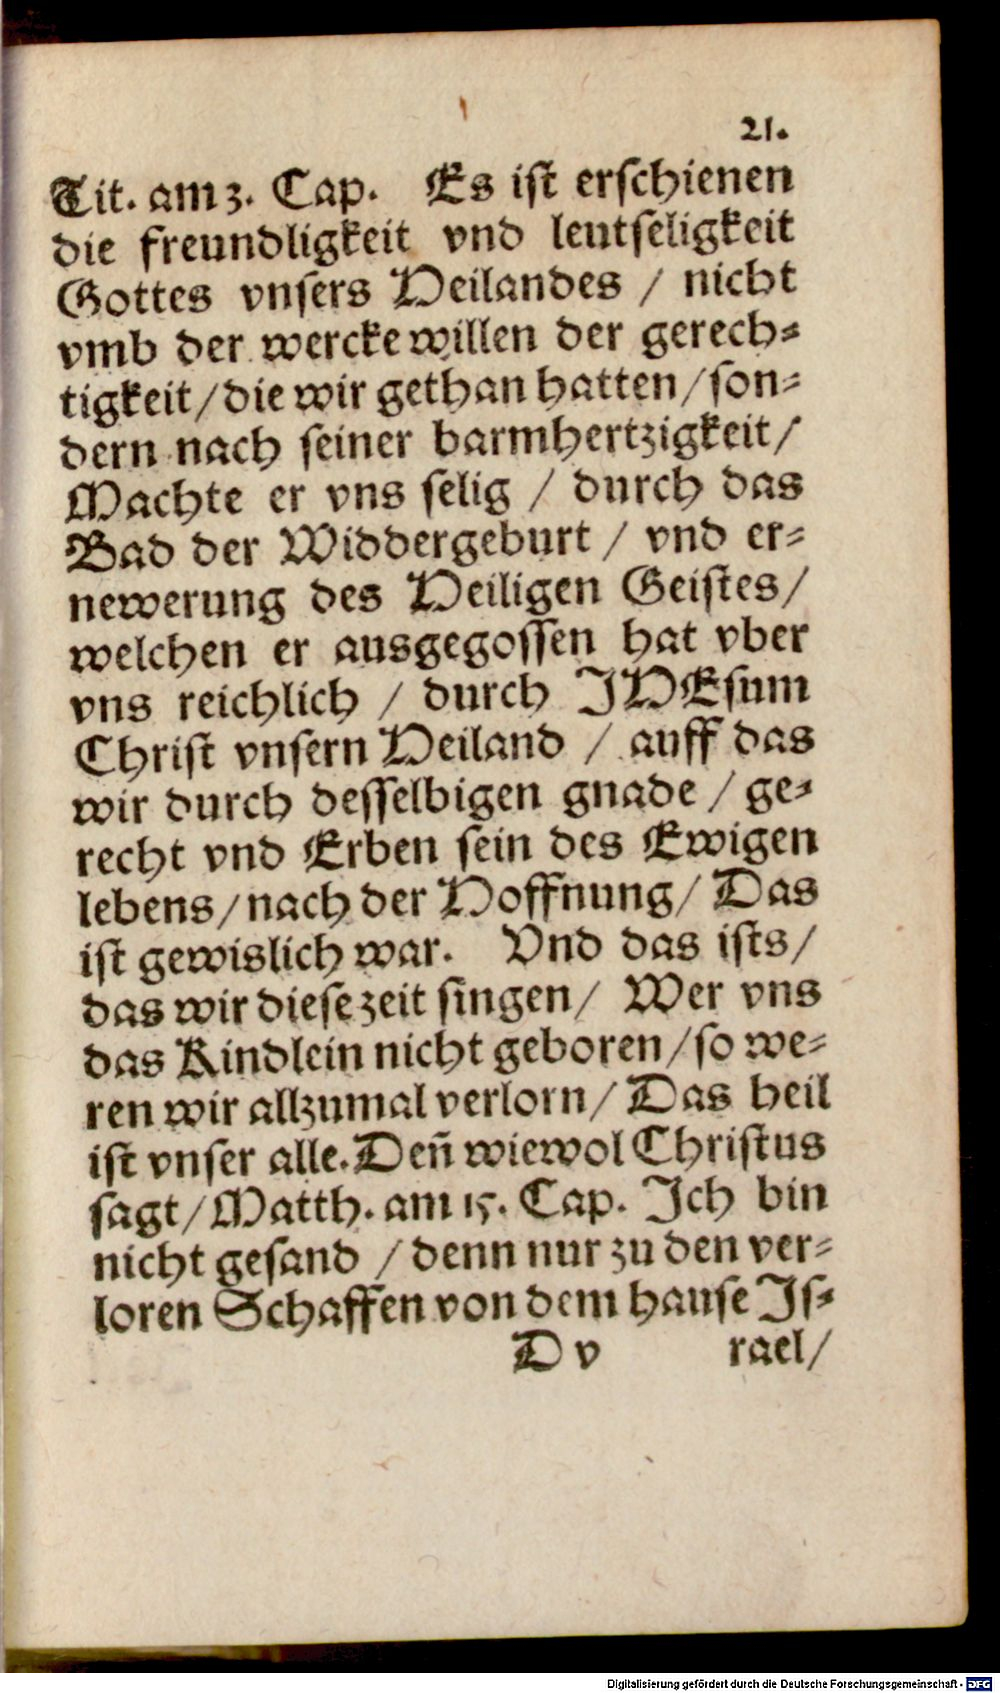 21.
Tit. am 3. Cap. Es iſt erſchienen
die freundligkeit vnd leutſeligkeit
Gottes vnſers Heilandes / nicht
vmb der wercke willen der gerech⸗
tigkeit / die wir gethan hatten / ſon⸗
dern nach ſeiner barmhertzigkeit /
Machte er vns ſelig / durch das
Bad der Widdergeburt / vnd er⸗
newerung des Heiligen Geiſtes /
welchen er ausgegoſſen hat vber
vns reichlich / durch JHEſum
Chriſt vnſern Heiland / auff das
wir durch deſſelbigen gnade / ge⸗
recht vnd Erben ſein des Ewigen
lebens / nach der Hoffnung / Das
iſt gewislich war. Vnd das iſts /
das wir dieſe zeit ſingen / Wer vns
das Kindlein nicht geboren / ſo we⸗
ren wir allzumal verlorn / Das heil
iſt vnſer alle. Deñ wiewol Chriſtus
ſagt / Matth. am 15. Cap. Jch bin
nicht geſand / denn nur zu den ver⸗
loren Schaffen von dem hauſe Jſ⸗
D v rael /
Digitalisierung gefördert durch die Deutsche Forschungsgemeinschaft - DFG